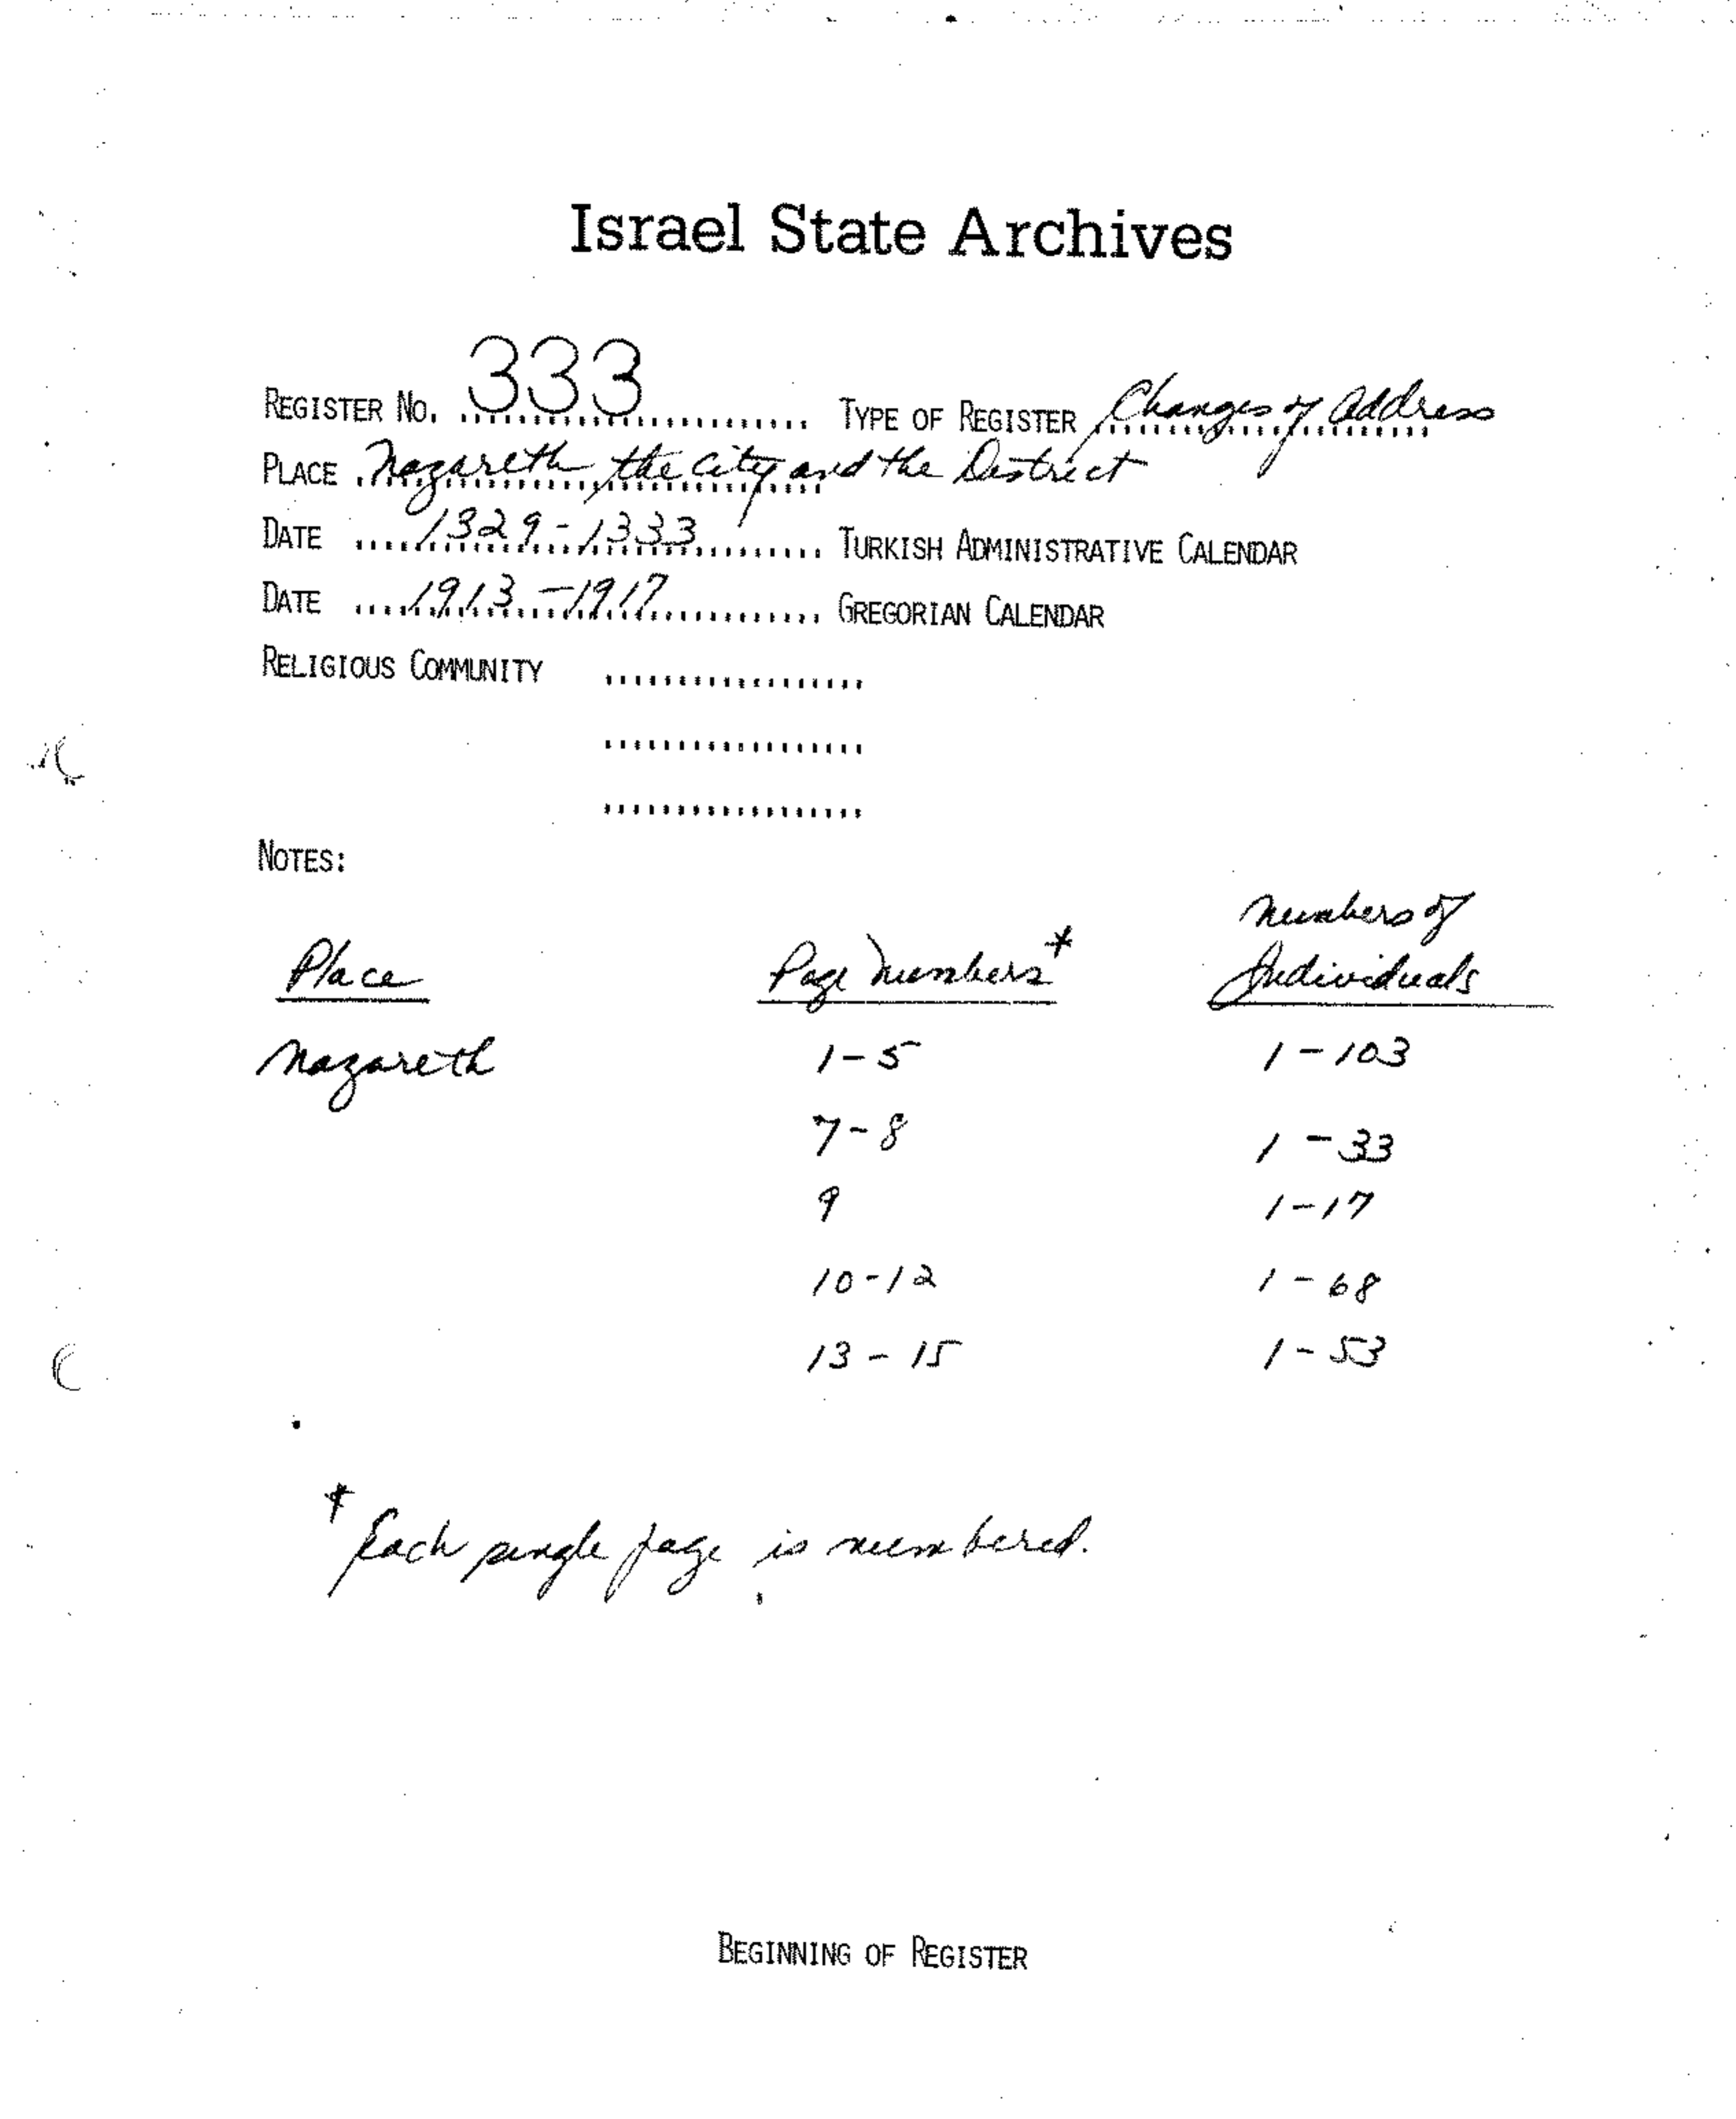 Israel State Archives
REGISTER NO. 333 TYPE OF REGISTER Changes of Address
PLACE Nazareth, the City and the District
DATE 1329-1333 TURKISH ADMINISTRATIVE CALENDAR
DATE 1913-1917 GREGORIAN CALENDAR
RELIGIOUS COMMUNITY
NOTES:
Place Page Numbers* Numbers of Individuals
Nazareth 1-5 1-103
7-8 1-33
9 1-17
10-12 1-68
13-15 1-53
* Each single page is numbered.
BEGINNING OF REGISTER